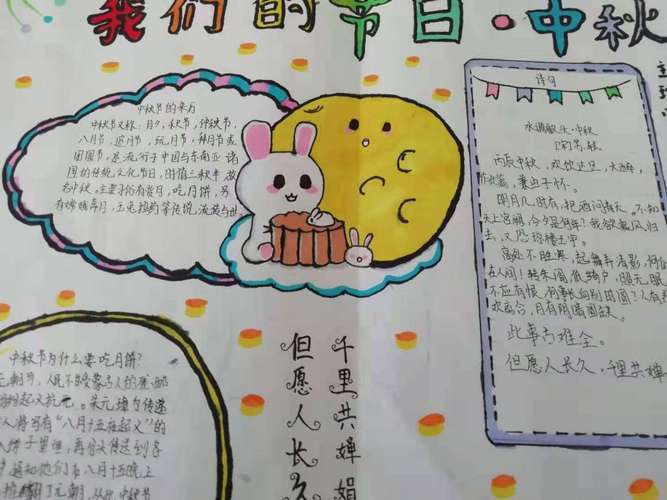 我们的节日·中秋
中秋节的来历
中秋节又称：月夕，秋节，仲秋节，
八月节，追月节，玩月节，拜月节或
团圆节，是流行于中国与东南亚诸
国的传统文化节日，因值三秋半，故
名中秋，主要习俗有赏日，吃月饼，另
有嫦娥奔月，玉兔捣药等传说，流
诗句
水调歌头·中秋
丙辰中秋，欢饮达旦，大醉，
作此篇，兼
明月几时有，把酒问青天。不知
天上宫阙，今夕是何年？我欲乘风归
去，又恐琼楼玉宇。
高处不胜寒，起舞弄清影，何似
在人间！转朱阁，低绮户，照无眠
不应有恨，何事长向别时圆？人有悲
欢离合，月有阴晴圆缺。
此事古难全。
但愿人长久，千里共婵
但愿人长久
千里共婵娟
中秋节为什么要吃月饼？
元朝末，人民不
的起义抗元。朱元璋为传递
人将写有“八月十五夜起义”的
饼子里面，再
们在八月十五晚上
了元朝，